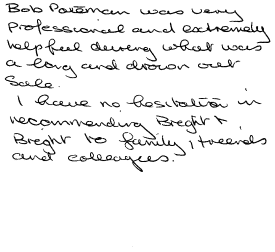 Bob Pateman was very
professional and extremely
helpful during what was
a long and drawn out
Sale.
I have no hesitation in
recommending Bright &
Bright to family, friends
and colleagues.